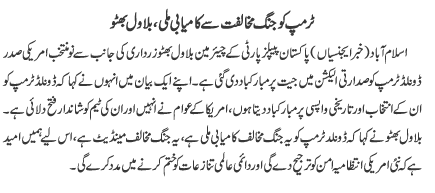 ٹرمپ کو جنگ مخالفت سے کامیابی ملی، بلاول بھٹو
اسلام آباد (خبر ایجنسیاں) پاکستان پیپلز پارٹی کے چیئرمین بلاول بھٹو زرداری کی جانب سے نو منتخب امریکی صدر
ڈونلڈ ٹرمپ کو صدارتی الیکشن میں جیت پر مبارکباد دی گئی ہے۔ اپنے ایک بیان میں انہوں نے کہا کہ ڈونلڈ ٹرمپ کو
ان کے انتخاب اور تاریخی واپسی پر مبارکباد دیتا ہوں، امریکا کے عوام نے انہیں اور ان کی ٹیم کو شاندار فتح دلائی ہے۔
بلاول بھٹو نے کہا کہ ڈونلڈ ٹرمپ کو یہ جنگ مخالف کامیابی ملی ہے، یہ جنگ مخالف مینڈیٹ ہے، اس لیے ہمیں امید
ہے کہ نئی امریکی انتظامیہ امن کو ترجیح دے گی اور دائمی عالمی تنازعات کو ختم کرنے میں مدد کرے گی۔